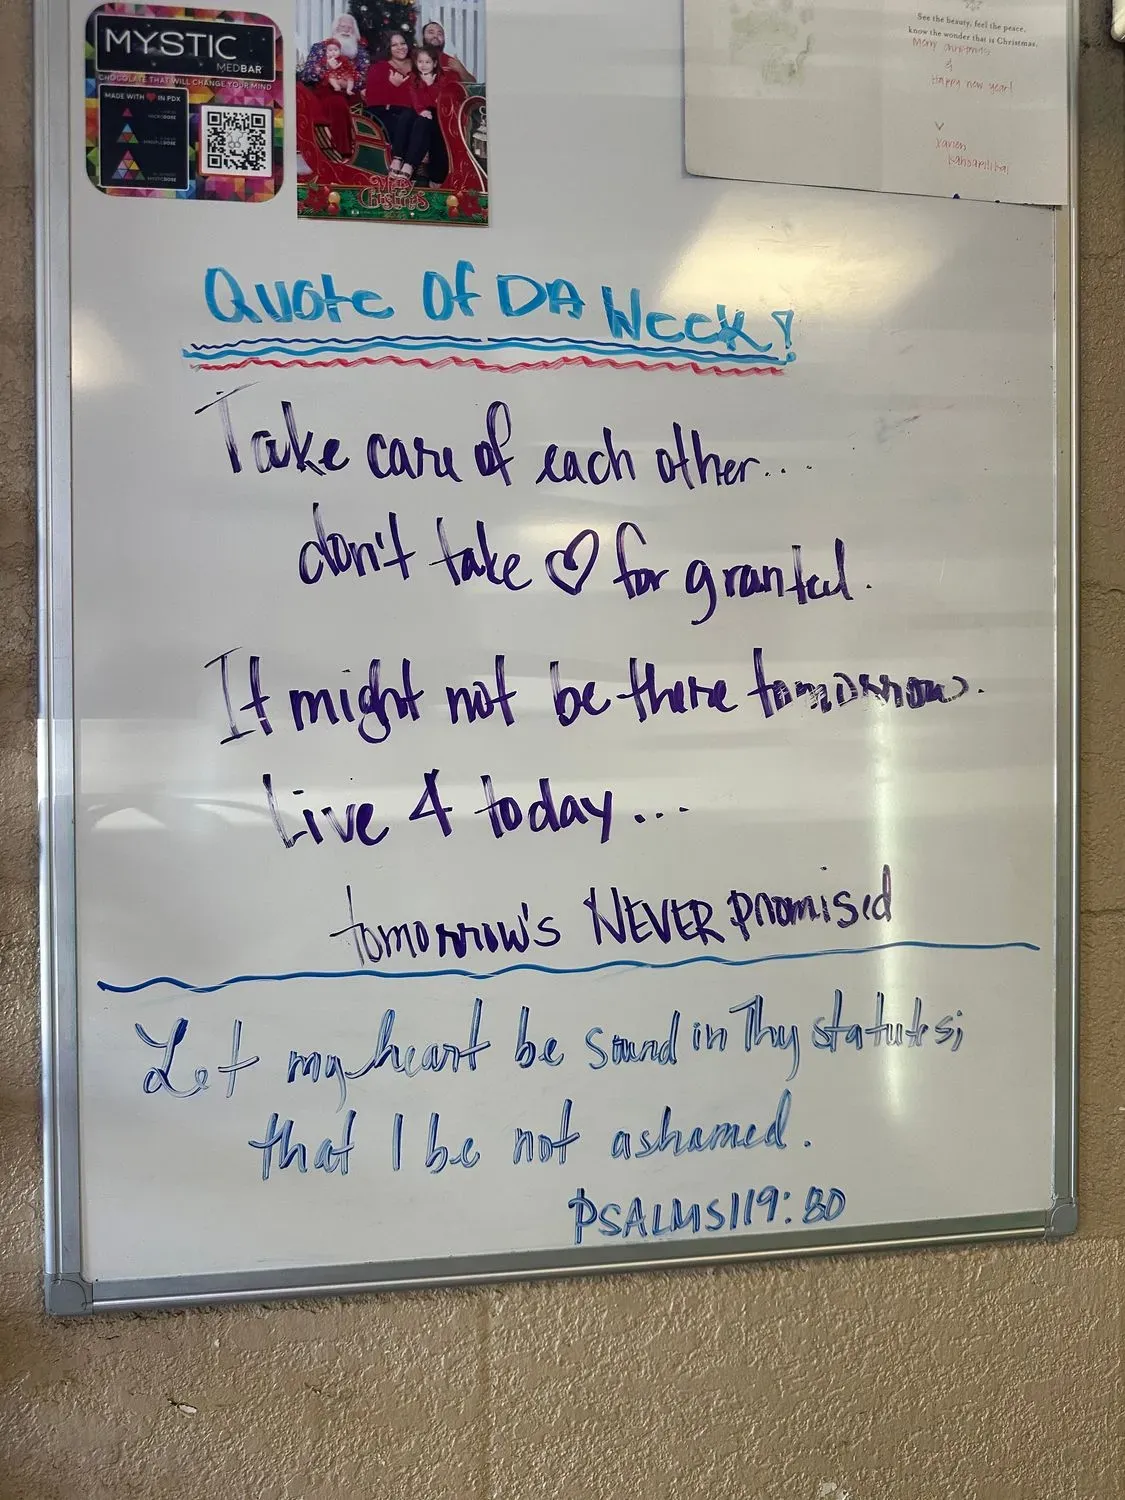 MYSTIC
MEDBAR
CHOCOLATE THAT WILL CHANGE YOUR MIND
MADE WITH ❤ IN PDX
MICRODOSE
Merry
Christmas
See the beauty, feel the peace,
know the wonder that is Christmas.
Merry Christmas
&
Happy new year!
Karen
Quote Of DA Week!
Take care of each other...
don't take ♡ for granted.
It might not be there tomorrow.
Live 4 today...
tomorrow's NEVER promised
Let my heart be sound in Thy statutes;
that I be not ashamed.
PSALMS 119:80